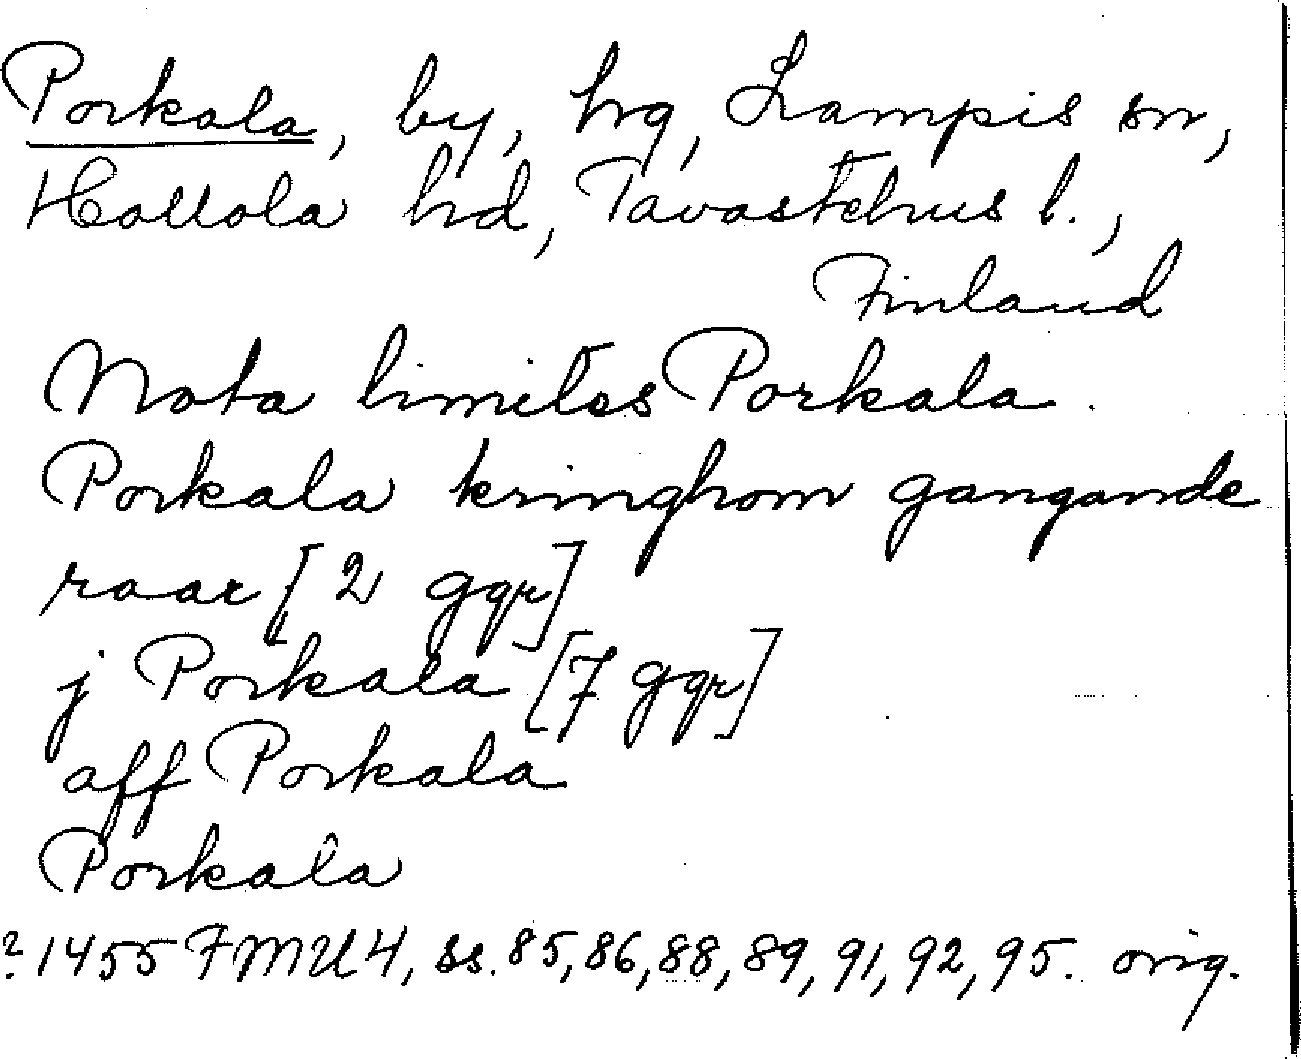 Porkala, by, hg, Lampis sn,
Hollola hd, Tavastehus l.,
Finland
Nota limites Porkala.
Porkala kringhom gangande
raar [2 ggr]
j Porkala [7 ggr]
aff Porkala
Porkala
? 1455 FMU 4, ss. 85, 86, 88, 89, 91, 92, 95. orig.